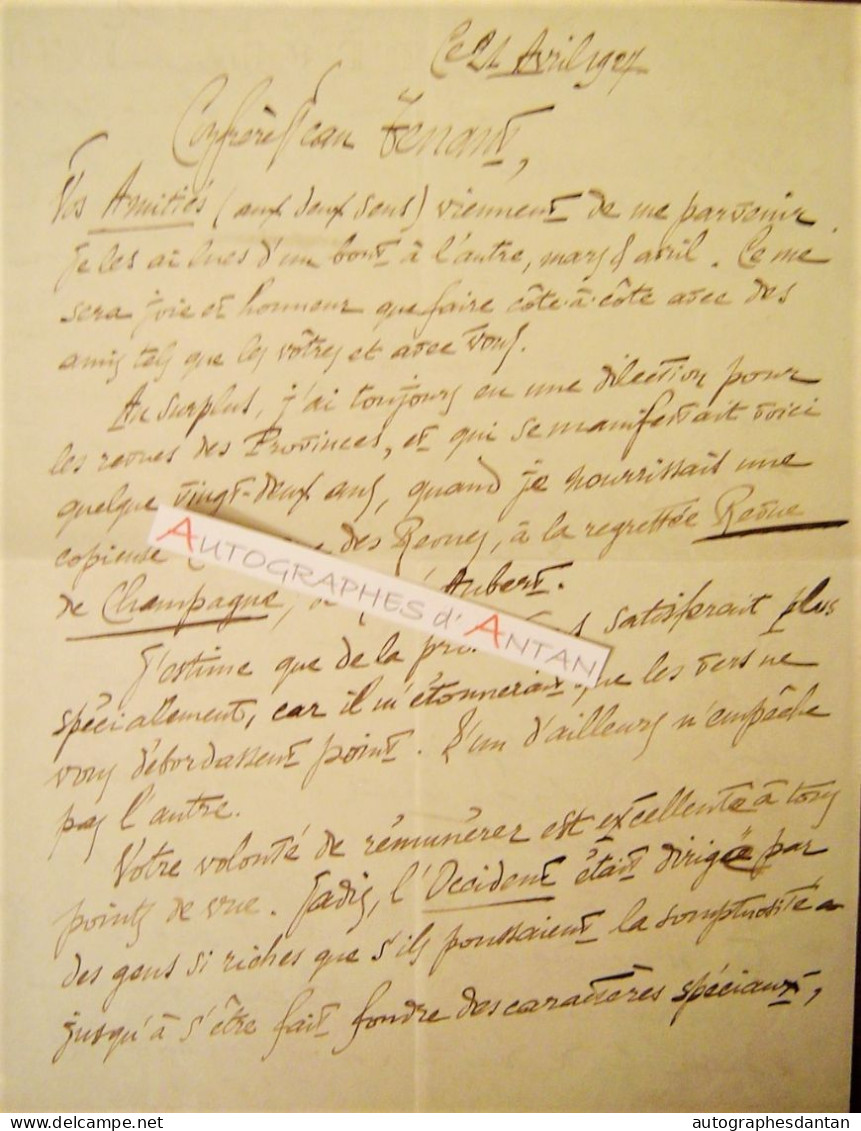 Ce 21 Avril 1927
Confrère Jean Tenant,
Vos Amitiés (aux deux sens) viennent de me parvenir
Je les ai lues d'un bout à l'autre, mars & avril. Ce me
sera joie et honneur que faire côte-à-côte avec des
amis tels que les vôtres et avec vous.
Au surplus, j'ai toujours eu une dilection pour
les revues des Provinces, et qui se manifestait voici
quelque vingt-deux ans, quand je nourrissais une
copieuse des Revues, à la regrettée Revue
de Champagne, Aubert.
J'estime que de la satisferait plus
spécialement, car il m'étonnerait que les vers ne
vous débordassent point. L'un d'ailleurs n'empêche
pas l'autre.
Votre volonté de rémunérer est excellente à tous
points de vue. Jadis, l'Occident était dirigée par
des gens si riches que s'ils poussaient la somptuosité
jusqu'à s'être fait fondre des caractères spéciaux,
AUTOGRAPHES d'ANTAN
delcampe.net
autographesdantan